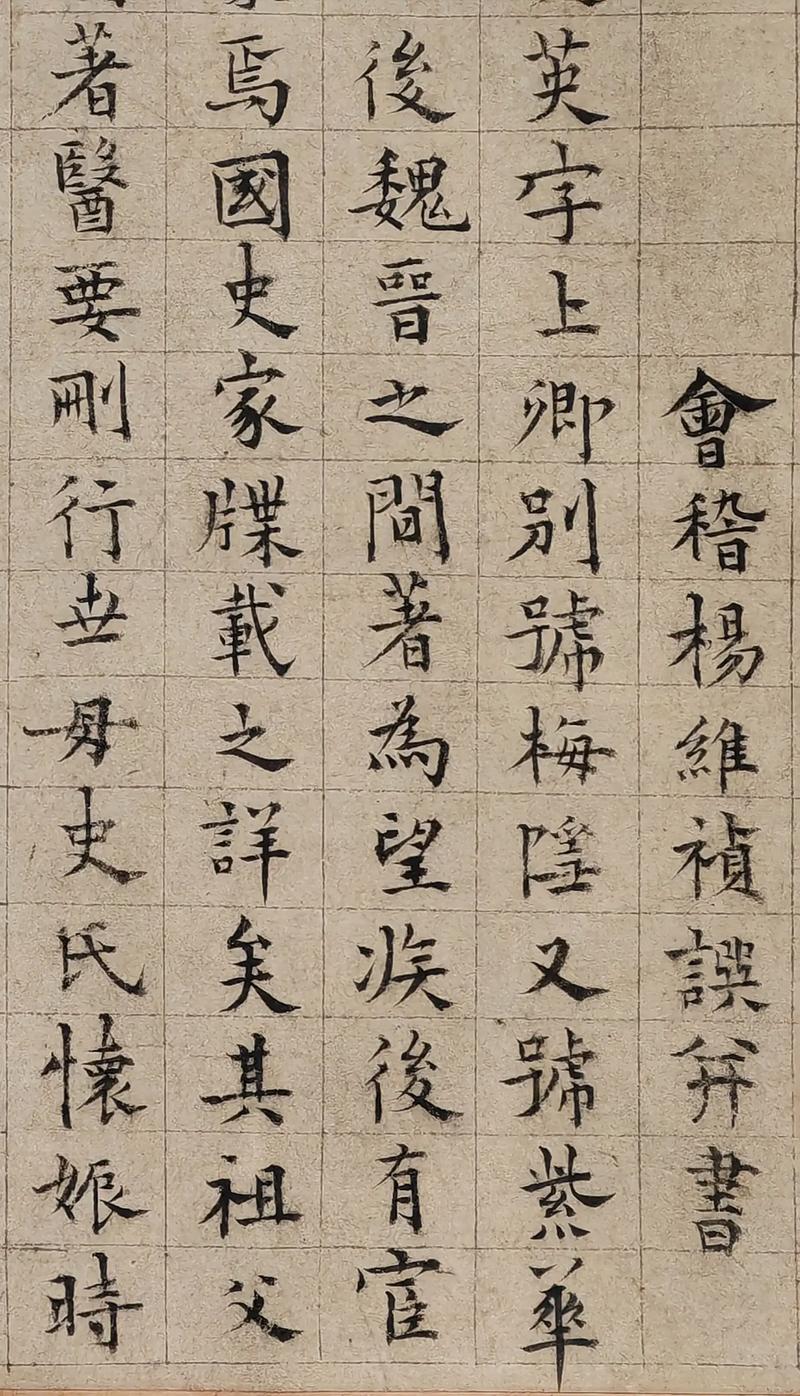 會稽楊維禎譔并書
英字上卿別號梅隱又號紫華
後魏晉之間著為望族後有宦
焉國史家牒載之詳矣其祖父
著醫要刪行世母史氏懷娠時